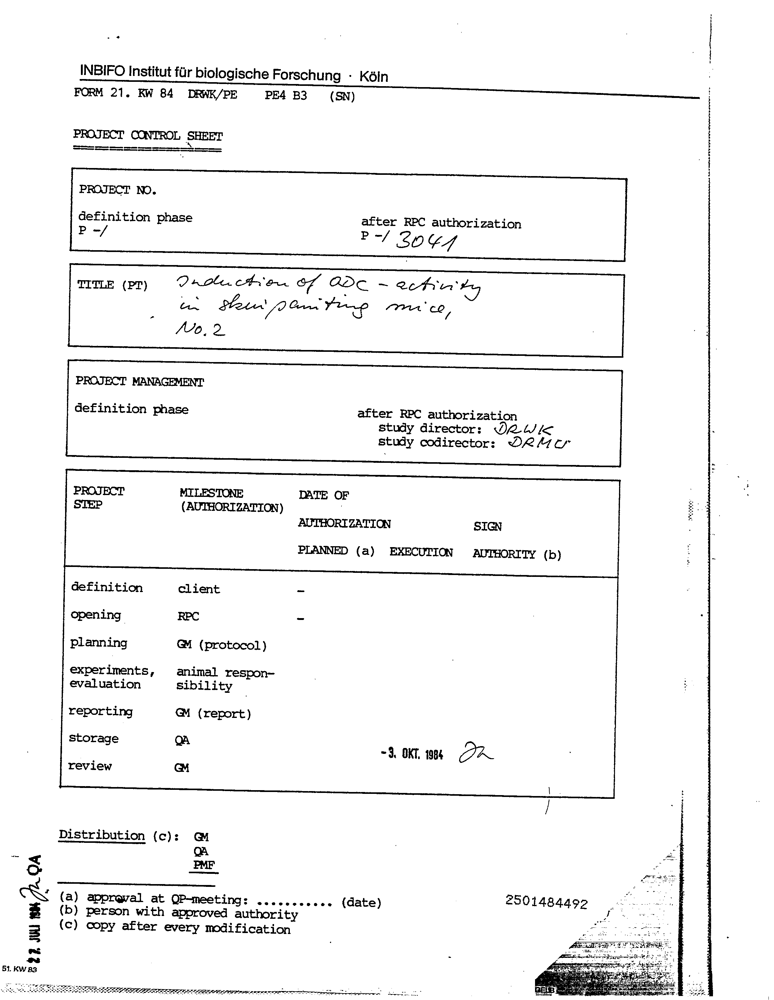 INBIFO Institut für biologische Forschung · Köln
FORM 21. KW 84 DRWK/PE PE4 B3 (SN)
PROJECT CONTROL SHEET
PROJECT NO.
definition phase after RPC authorization
P -/ P -/ 3041
TITLE (PT) Induction of ODC - activity
in skin painting mice,
No. 2
PROJECT MANAGEMENT
definition phase after RPC authorization
study director: DRWK
study codirector: DRMU
PROJECT MILESTONE DATE OF
STEP (AUTHORIZATION)
AUTHORIZATION SIGN
PLANNED (a) EXECUTION AUTHORITY (b)
definition client -
opening RPC -
planning GM (protocol)
experiments, animal respon-
evaluation sibility
reporting GM (report)
storage QA
-3. OKT. 1984
review GM
Distribution (c): GM
QA
PMF
(a) approval at QP-meeting: ........... (date)
(b) person with approved authority
(c) copy after every modification
2501484492
27. JULI 1984 QA
51. KW 83